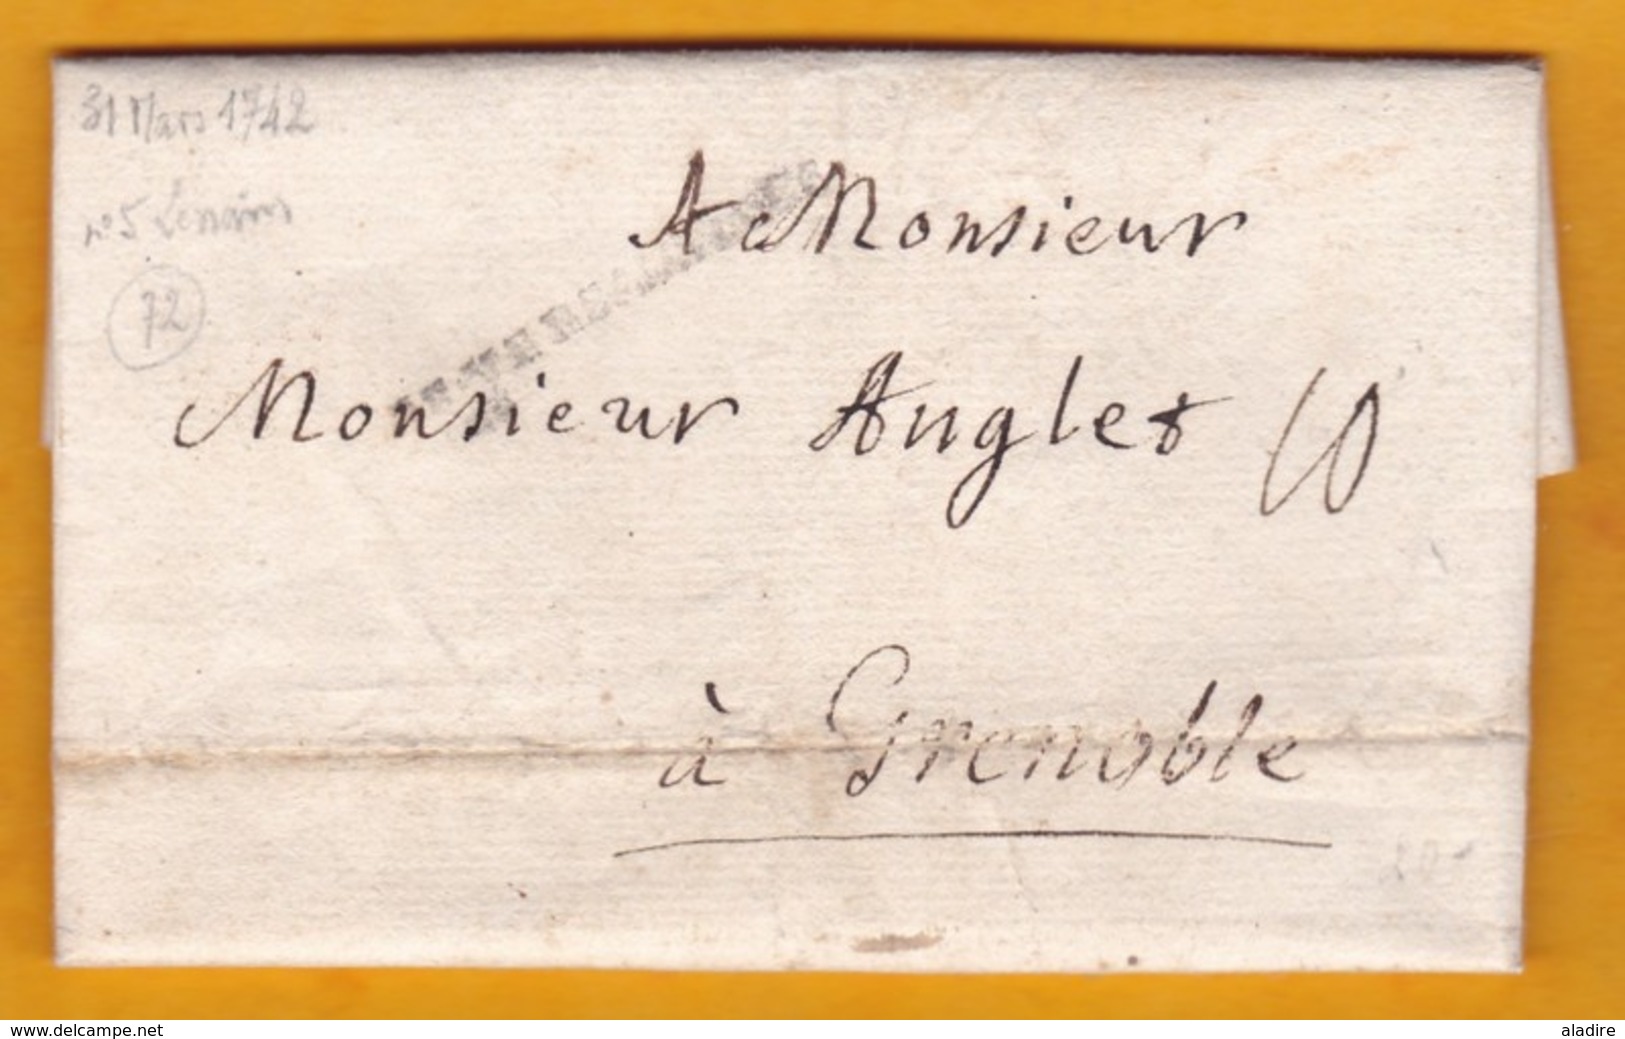 31 Mars 1742
n° 5 Lenain
72
DE VERSAILLES
A Monsieur
Monsieur Anglet
10
à Grenoble
www.delcampe.net
aladire